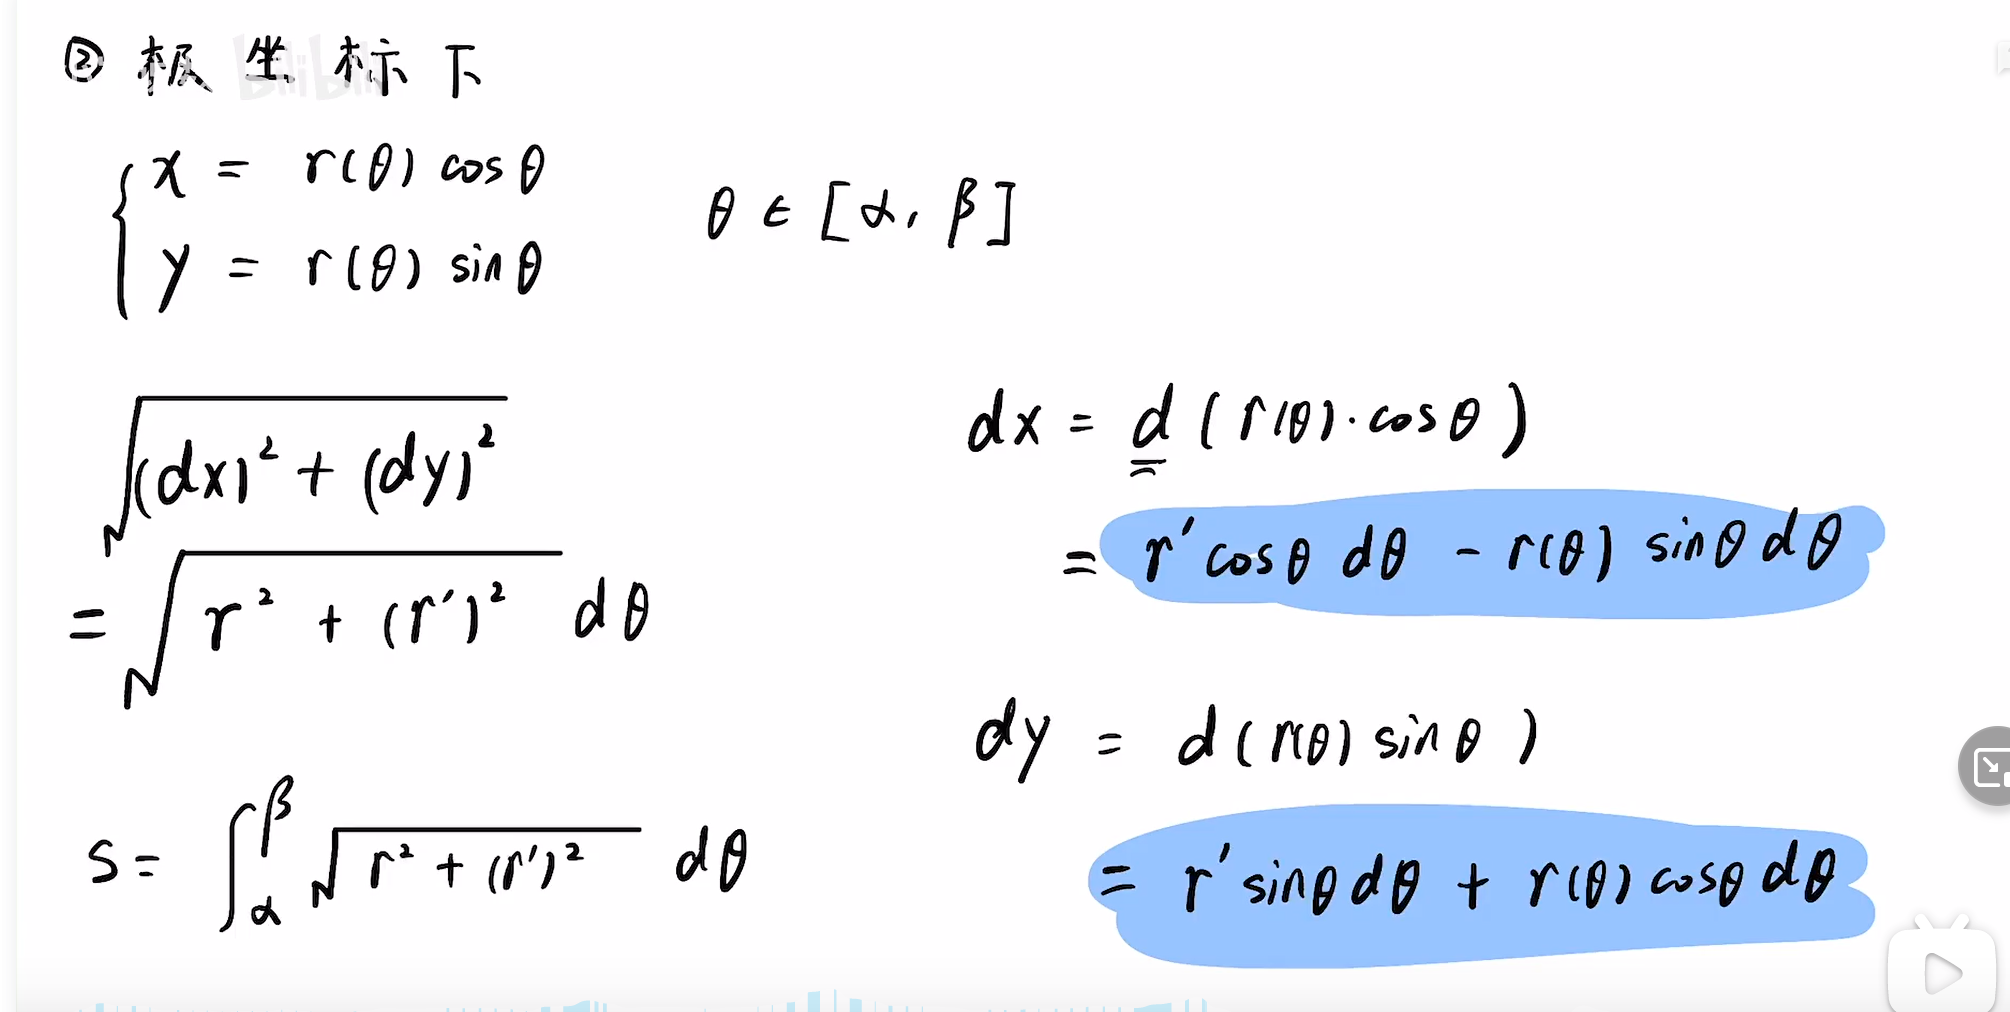 ② 极坐标下
x = r(θ) cosθ
y = r(θ) sinθ
θ ∈ [α, β]
√((dx)² + (dy)²)
= √(r² + (r′)²) dθ
s = ∫_α^β √(r² + (r′)²) dθ
dx = d(r(θ)·cosθ)
= r′cosθ dθ - r(θ) sinθ dθ
dy = d(r(θ) sinθ)
= r′sinθ dθ + r(θ) cosθ dθ
bilibili